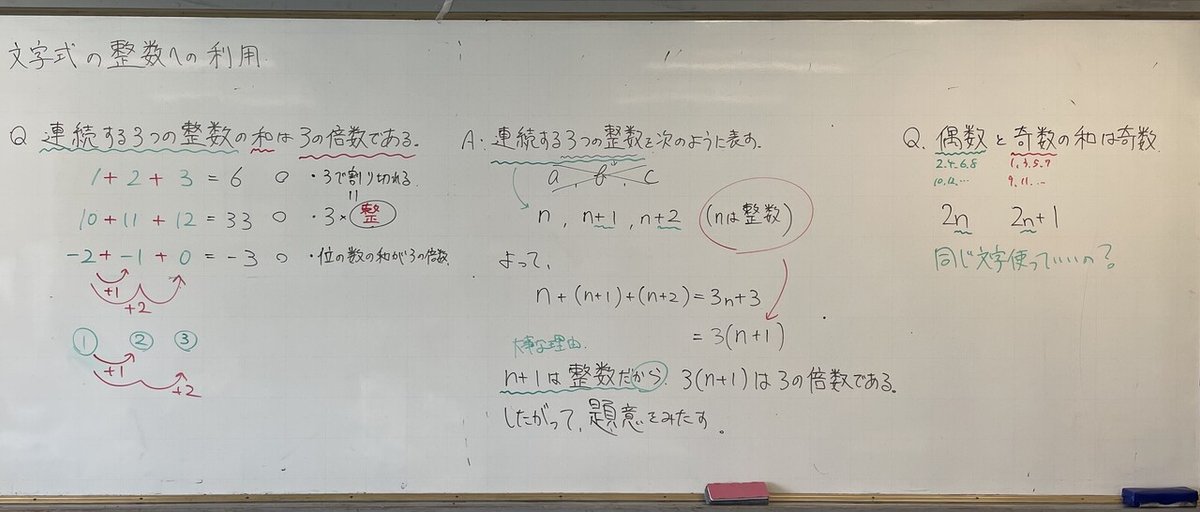 文字式の整数への利用
Q 連続する3つの整数の和は3の倍数である。
1+2+3=6 ○ ・3で割り切れる
10+11+12=33 ○ ・3×整
-2+-1+0=-3 ○ ・位の数の和が3の倍数
+1
+2
① ② ③
+1
+2
A: 連続する3つの整数を次のように表す。
a, b, c
n, n+1, n+2 (nは整数)
よって、
n+(n+1)+(n+2)=3n+3
=3(n+1)
大事な理由
n+1は整数だから 3(n+1)は3の倍数である。
したがって、題意をみたす。
Q. 偶数と奇数の和は奇数
2.4.6.8 1.3.5.7
10.12.… 9.11.…
2n 2n+1
同じ文字使っていいの?